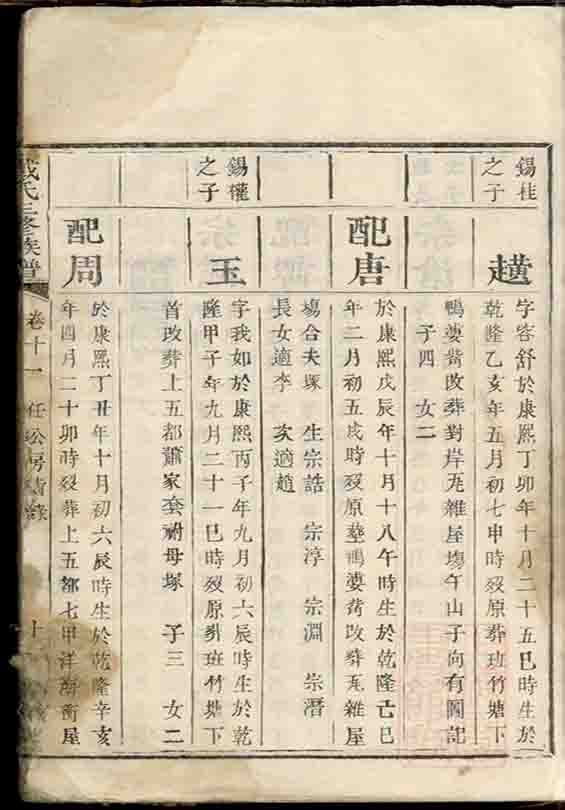 錫桂
之子
璜
字容舒於康熙丁卯年十月二十五巳時生於
乾隆乙亥年五月初七申時歿原葬班竹塘下
鴨婆𡺸改葬對岸瓦雜屋塲午山子向有圖記
子四 女二
配唐
於康熙戊辰年十月十八午時生於乾隆己巳
年二月初五戌時歿原塟鴨婆𡺸改葬瓦雜屋
塲合夫塚 生宗誥 宗淳 宗淵 宗潛
長女適李 次適趙
錫權
之子
玉
字我如於康熙丙子年九月初六辰時生於乾
隆甲子年九月二十一巳時歿原葬班竹塘下
首改葬上五都蕭家套祔母塚 子三 女二
配周
於康熙丁丑年十月初六辰時生於乾隆辛亥
年四月二十卯時歿葬上五都七甲洋海衝屋
氏三修族譜
卷十一 任公房齒錄 十